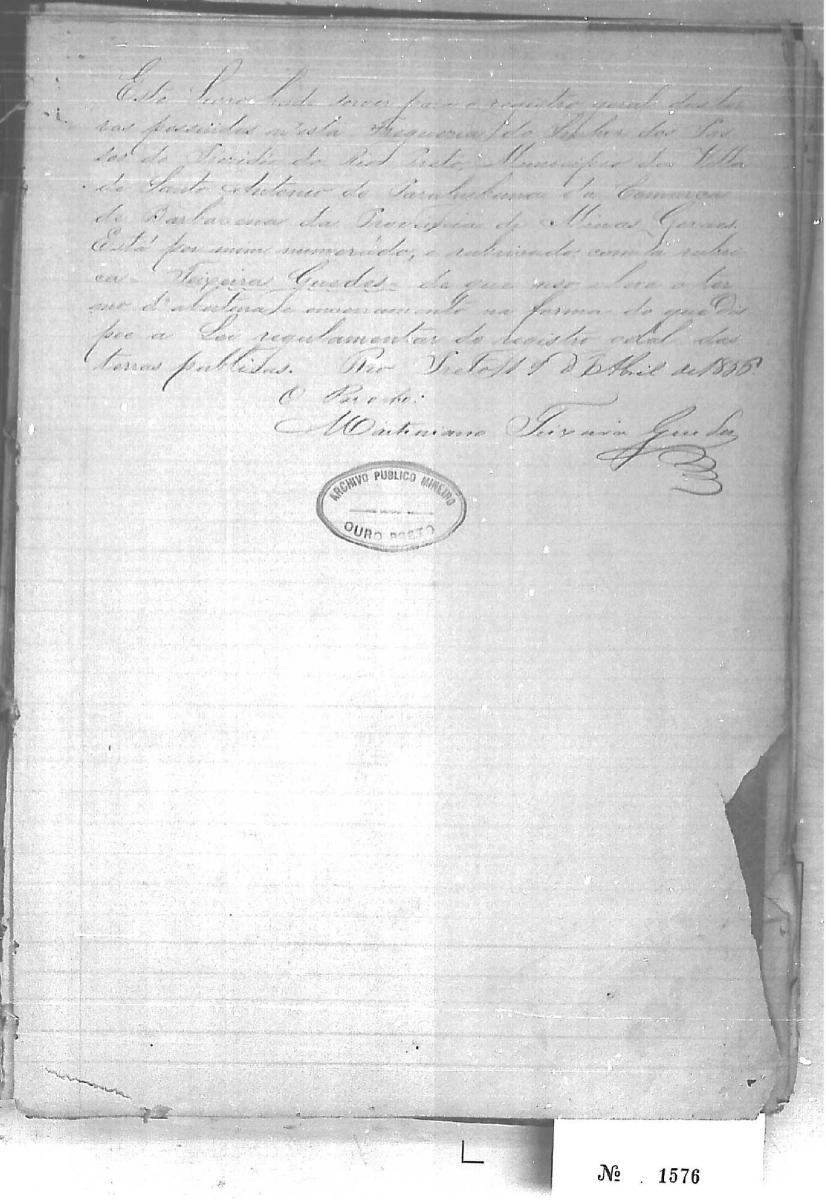 Este Livro hade servir para o registro geral das ter
ras possuidas n'esta Freguezia do Senhor dos Pas
sos do Prezidio do Rio Preto, Municipio da Villa
de Santo Antonio do Parahibuna e da Comarca
de Barbacena da Provincia de Minas Geraes.
Está por mim numerado, e rubricado com a rubri
ca - Teixeira Guedes - de que uso e leva o ter
mo d'abertura e encerramento na forma do que dis
põe a Lei regulamentar do registro das
terras publicas. Rio Preto 9 d'Abril de 1856
O Parocho:
Martiniano Teixeira Guedes
ARCHIVO PUBLICO MINEIRO
OURO PRETO
Nº 1576